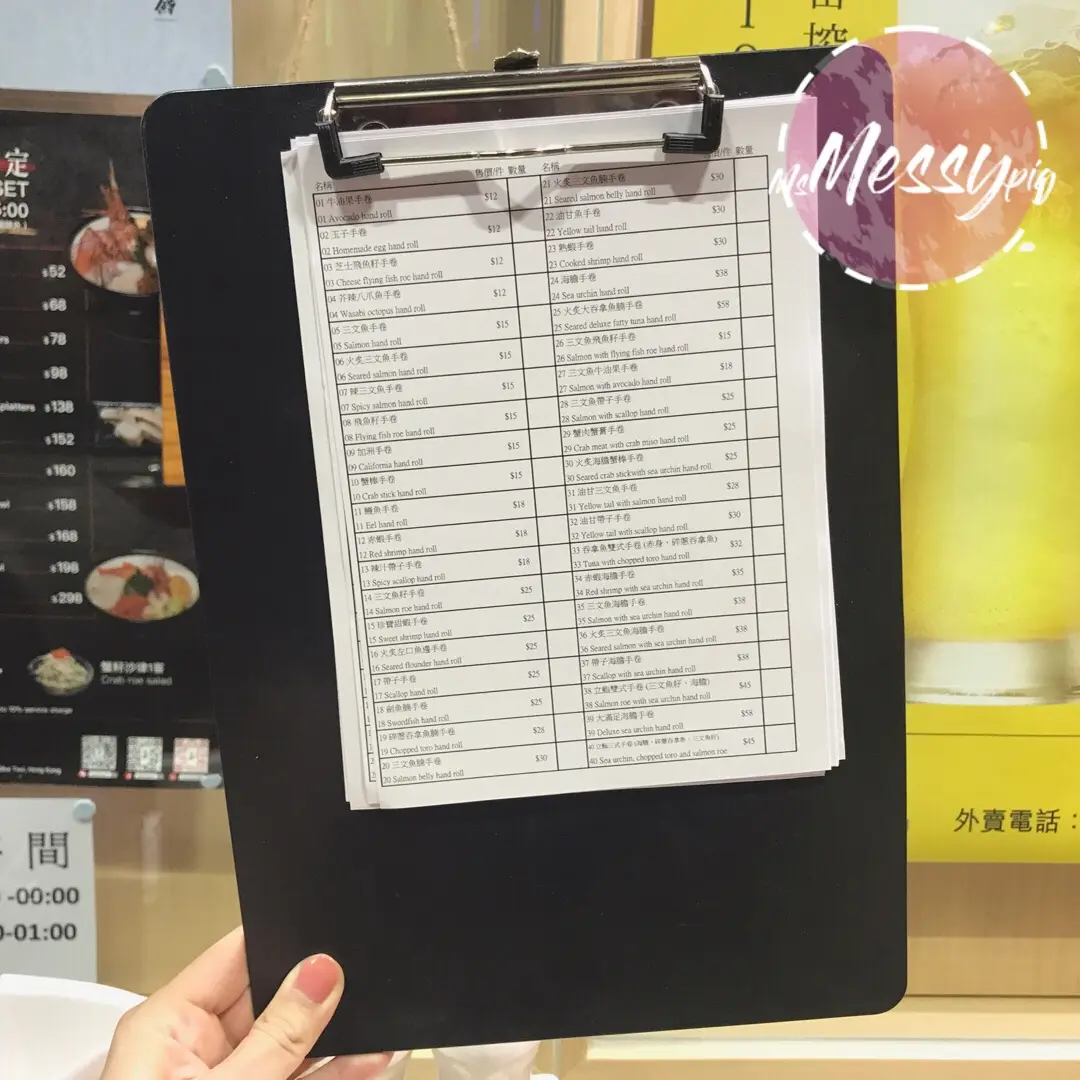 定
SET
$52
$68
$78
$98
platters $138
$152
$160
$158
$168
$198
$298
蟹籽沙律1客
Crab roe salad
10% service charge
間
-00:00
-01:00
名稱 售價/件 數量
01 牛油果手卷 $12
01 Avocado hand roll
02 玉子手卷 $12
02 Homemade egg hand roll
03 芝士飛魚籽手卷 $12
03 Cheese flying fish roe hand roll
04 芥辣八爪魚手卷 $12
04 Wasabi octopus hand roll
05 三文魚手卷 $15
05 Salmon hand roll
06 火炙三文魚手卷 $15
06 Seared salmon hand roll
07 辣三文魚手卷 $15
07 Spicy salmon hand roll
08 飛魚籽手卷 $15
08 Flying fish roe hand roll
09 加洲手卷 $15
09 California hand roll
10 蟹棒手卷 $15
10 Crab stick hand roll
11 鰻魚手卷 $18
11 Eel hand roll
12 赤蝦手卷 $18
12 Red shrimp hand roll
13 辣汁帶子手卷 $18
13 Spicy scallop hand roll
14 三文魚籽手卷 $25
14 Salmon roe hand roll
15 珍寶甜蝦手卷 $25
15 Sweet shrimp hand roll
16 火炙左口魚邊手卷 $25
16 Seared flounder hand roll
17 帶子手卷 $25
17 Scallop hand roll
18 劍魚腩手卷 $25
18 Swordfish hand roll
19 碎蔥吞拿魚腩手卷 $28
19 Chopped toro hand roll
20 三文魚腩手卷 $30
20 Salmon belly hand roll
名稱 售價/件 數量
21 火炙三文魚腩手卷 $30
21 Seared salmon belly hand roll
22 油甘魚手卷 $30
22 Yellow tail hand roll
23 熟蝦手卷 $30
23 Cooked shrimp hand roll
24 海膽手卷 $38
24 Sea urchin hand roll
25 火炙大吞拿魚腩手卷 $58
25 Seared deluxe fatty tuna hand roll
26 三文魚飛魚籽手卷 $15
26 Salmon with flying fish roe hand roll
27 三文魚牛油果手卷 $18
27 Salmon with avocado hand roll
28 三文魚帶子手卷 $25
28 Salmon with scallop hand roll
29 蟹肉蟹膏手卷 $25
29 Crab meat with crab miso hand roll
30 火炙海膽蟹棒手卷 $25
30 Seared crab stickwith sea urchin hand roll
31 油甘三文魚手卷 $28
31 Yellow tail with salmon hand roll
32 油甘帶子手卷 $30
32 Yellow tail with scallop hand roll
33 吞拿魚雙式手卷 (赤身、碎蔥吞拿魚) $32
33 Tuna with chopped toro hand roll
34 赤蝦海膽手卷 $35
34 Red shrimp with sea urchin hand roll
35 三文魚海膽手卷 $38
35 Salmon with sea urchin hand roll
36 火炙三文魚海膽手卷 $38
36 Seared salmon with sea urchin hand roll
37 帶子海膽手卷 $38
37 Scallop with sea urchin hand roll
38 立鮨雙式手卷 (三文魚籽、海膽) $45
38 Salmon roe with sea urchin hand roll
39 大滿足海膽手卷 $58
39 Deluxe sea urchin hand roll
40 立鮨三式手卷 (海膽、碎蔥吞拿魚、三文魚籽) $45
40 Sea urchin, chopped toro and salmon roe
Ms Messy pig
外賣電話：